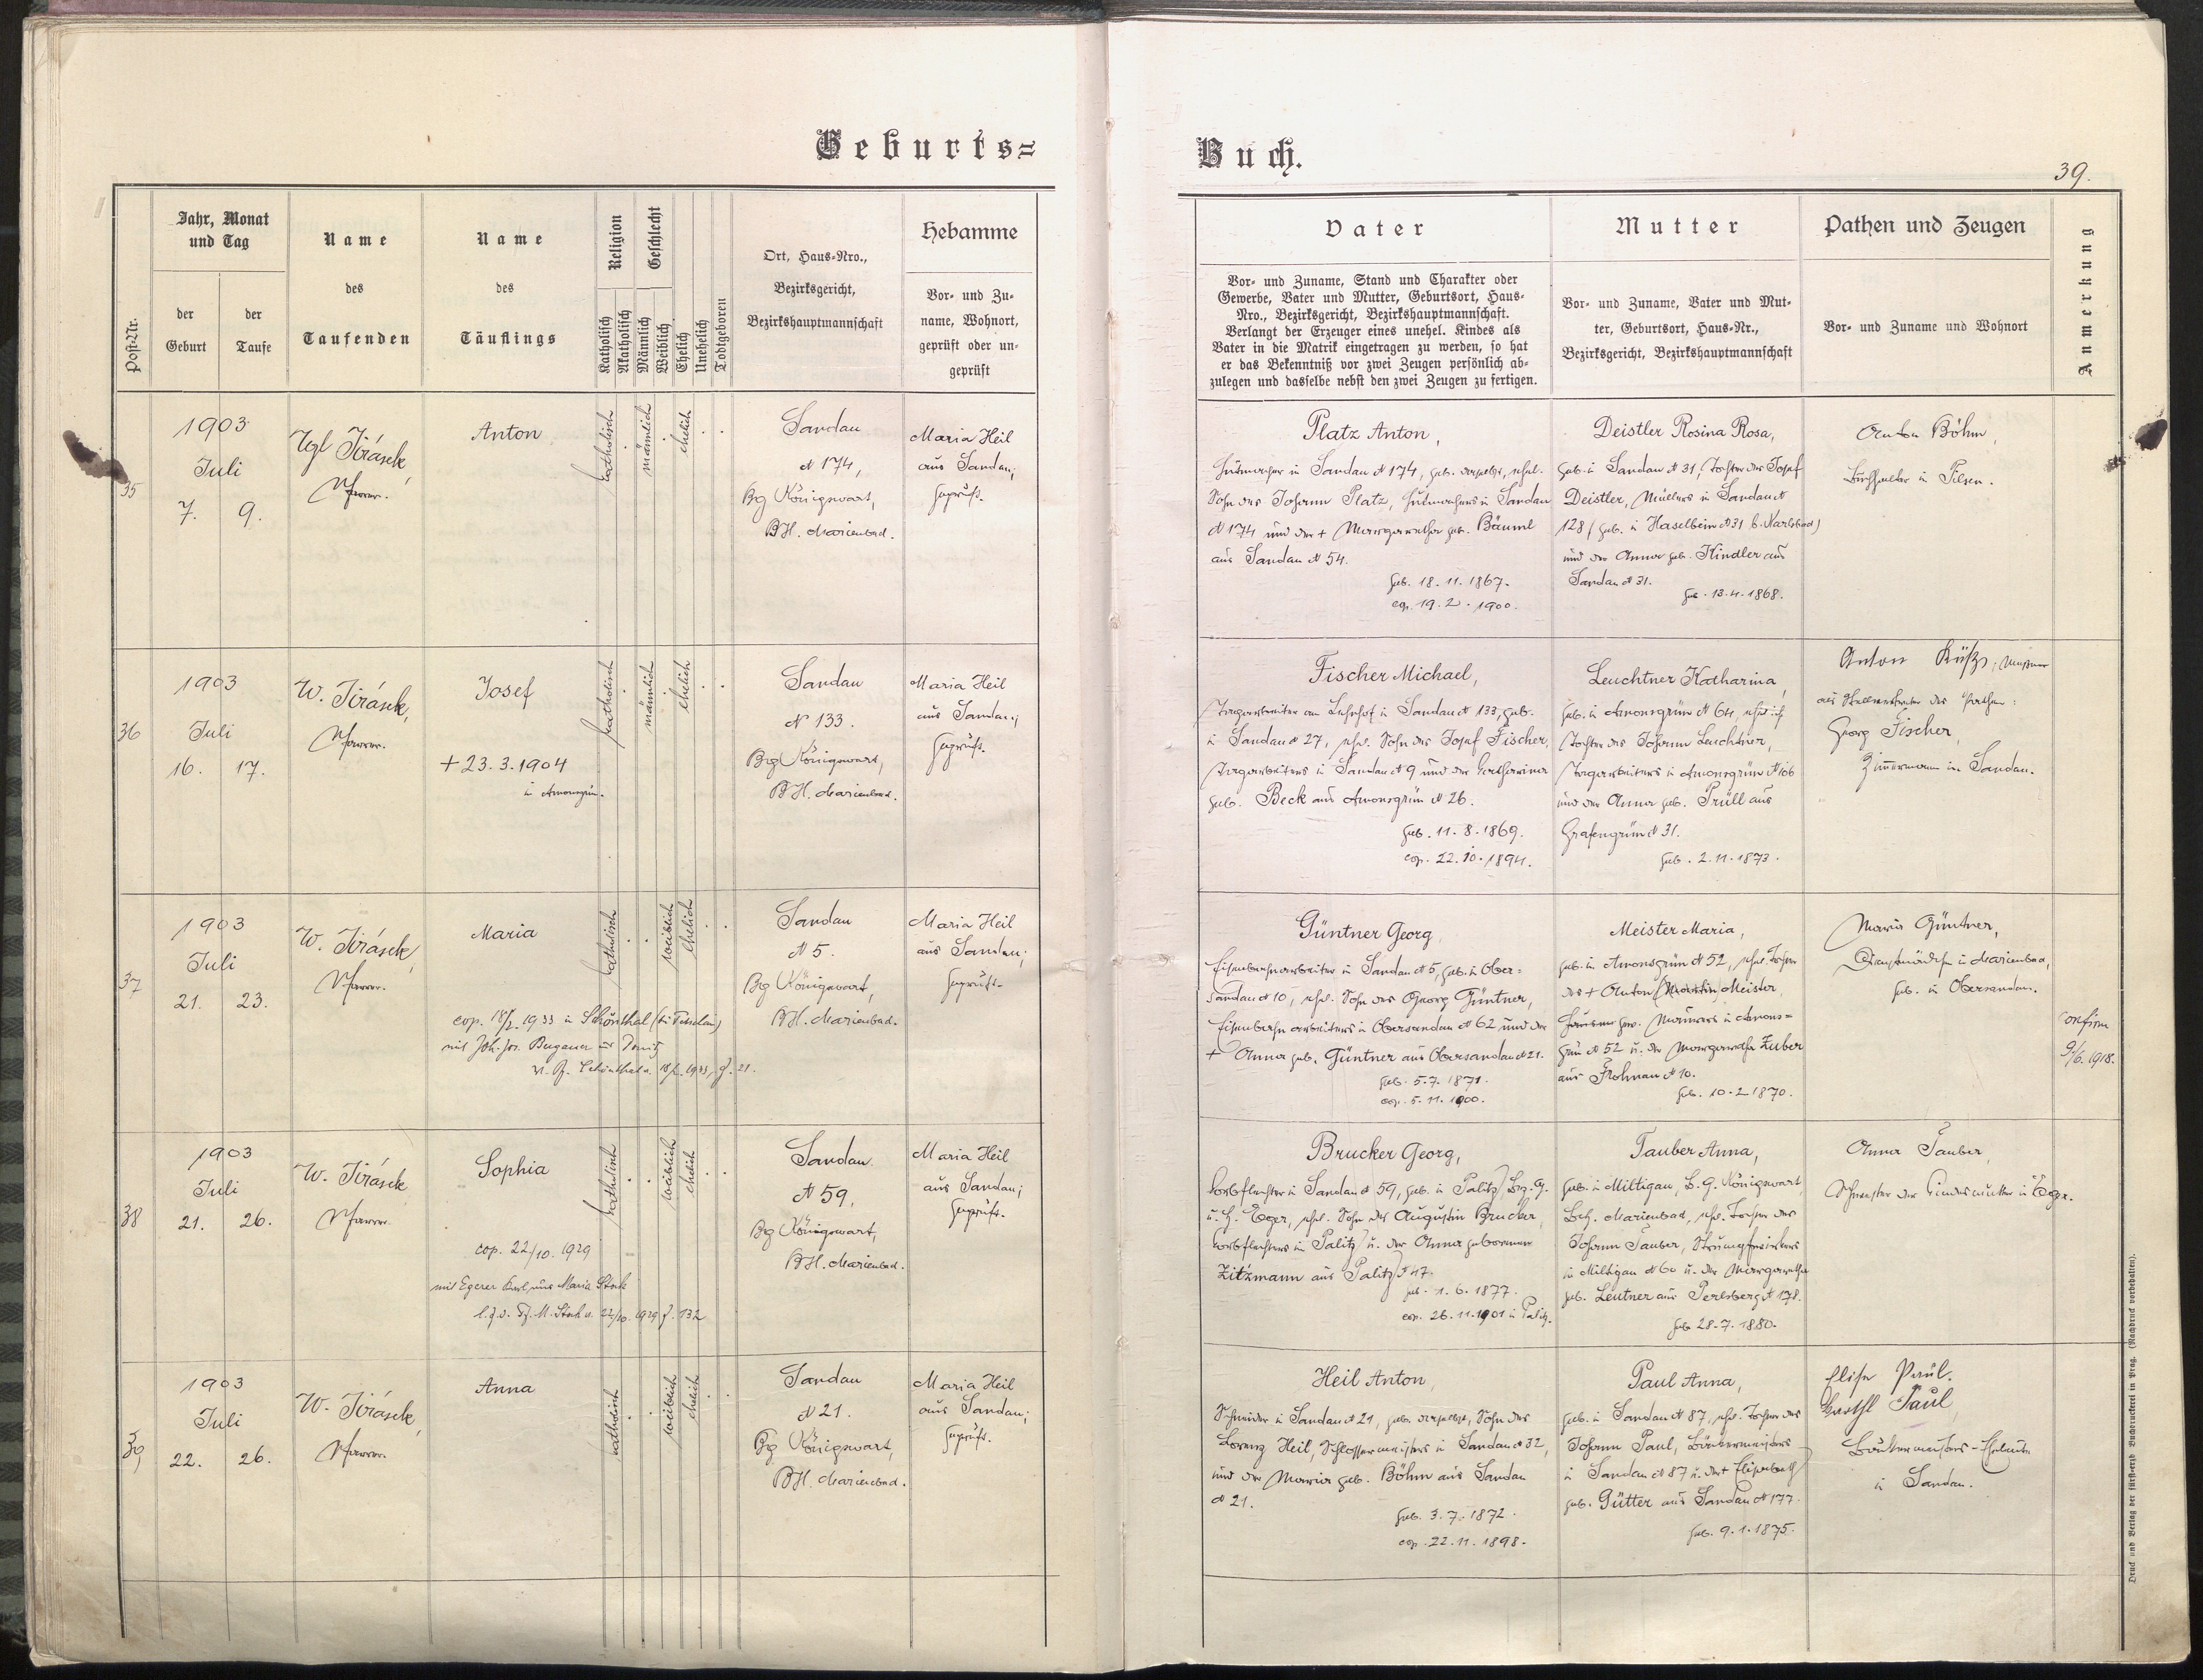 Geburts=
Buch.
39.
Post-Nr.
Jahr, Monat
und Tag
der
Geburt
der
Taufe
Name
des
Taufenden
Name
des
Täuflings
Religion
Katholisch
Akatholisch
Geschlecht
Männlich
Weiblich
Ehelich
Unehelich
Todtgeboren
Ort, Haus-Nro.,
Bezirksgericht,
Bezirkshauptmannschaft
Hebamme
Vor- und Zu-
name, Wohnort,
geprüft oder un-
geprüft
Vater
Vor- und Zuname, Stand und Charakter oder
Gewerbe, Vater und Mutter, Geburtsort, Haus-
Nro., Bezirksgericht, Bezirkshauptmannschaft.
Verlangt der Erzeuger eines unehel. Kindes als
Vater in die Matrik eingetragen zu werden, so hat
er das Bekenntniß vor zwei Zeugen persönlich ab-
zulegen und dasselbe nebst den zwei Zeugen zu fertigen.
Mutter
Vor- und Zuname, Vater und Mut-
ter, Geburtsort, Haus-Nr.,
Bezirksgericht, Bezirkshauptmannschaft
Pathen und Zeugen
Vor- und Zuname und Wohnort
Anmerkung
35
1903
Juli
7. 9.
Jirásek,
Pfarrer.
Anton
katholisch
männlich
ehelich
Sandau
N 174,
Bg Königswart,
BH. Marienbad.
Maria Heil
aus Sandau;
geprüft.
Platz Anton,
Hutmacher in Sandau N 174, geb. daselbst, ehel.
Sohn des Johann Platz, Hutmachers in Sandau
N 174 und der + Margaretha geb. Bäuml
aus Sandau N 54.
geb. 18.11.1867.
cop. 19.2.1900.
Deistler Rosina Rosa,
geb. in Sandau N 31, Tochter des Josef
Deistler, Müllers in Sandau N
128 (geb. in Haselbein N 31 b. Karlsbad)
und der Anna geb. Kindler aus
Sandau N 31.
geb. 13.4.1868.
Anton Böhm,
Buchhalter in Pilsen.
36
1903
Juli
16. 17.
W. Jirásek,
Pfarrer.
Josef
+ 23.3.1904
in Amonsgrün.
katholisch
männlich
ehelich
Sandau
N 133.
Bg Königswart,
BH. Marienbad.
Maria Heil
aus Sandau;
geprüft.
Fischer Michael,
Tagarbeiter am Lehnhof in Sandau N 133, geb.
in Sandau N 27, ehel. Sohn des Josef Fischer,
Tagarbeiters in Sandau N 9 und der Katharina
geb. Beck aus Amonsgrün N 26.
geb. 11.8.1869.
cop. 22.10.1894.
Leuchtner Katharina,
geb. in Amonsgrün N 64, ehel.
Tochter des Johann Leuchtner,
Tagarbeiters in Amonsgrün N 106
und der Anna geb. Prüll aus
Grafengrün N 31.
geb. 2.11.1873.
Anton
als Stellvertreter des Pathen:
Georg Fischer,
Zimmermann in Sandau.
37
1903
Juli
21. 23.
W. Jirásek,
Pfarrer.
Maria
cop. 18/2. 1933 in Schönthal
mit Joh. Jos.
katholisch
weiblich
ehelich
Sandau
N 5.
Bg Königswart,
BH. Marienbad.
Maria Heil
aus Sandau;
geprüft.
Güntner Georg,
Eisenbahnarbeiter in Sandau N 5, geb. in Ober-
sandau N 10, ehel. Sohn des Georg Güntner,
Eisenbahnarbeiters in Obersandau N 62 und der
+ Anna geb. Güntner aus Obersandau N 21.
geb. 5.7.1871.
cop. 5.11.1900.
Meister Maria,
geb. in Amonsgrün N 52, ehel. Tochter
des + Anton (Martin) Meister,
gew. Maurers in Amons-
grün N 52 u. der Margaretha Zuber
aus Frohnau N 10.
geb. 10.2.1870.
Maria Güntner,
Dienstmädchen in Marienbad,
geb. in Obersandau.
confirm
9/6. 1918.
38
1903
Juli
21. 26.
W. Jirásek
Pfarrer.
Sophia
cop. 22/10. 1929
mit Egerer Karl
katholisch
weiblich
ehelich
Sandau
N 59,
Bg Königswart,
BH. Marienbad.
Maria Heil
aus Sandau;
geprüft.
Brucker Georg,
Korbflechter in Sandau N 59, geb. in Palitz, Bez. G.
u. H. Eger, ehel. Sohn des Augustin Brucker,
Korbflechters in Palitz u. der Anna geborenen
Zitzmann aus Palitz N 47.
geb. 1.6.1877.
cop. 26.11.1901 in Palitz.
Tauber Anna,
geb. in Miltigau, B. G. Königswart,
Bzh. Marienbad, ehel. Tochter des
Johann Tauber, Strumpfwirkers
in Miltigau N 60 u. der Margaretha
geb. Leutner aus Perlsberg N 178.
geb. 28.7.1880.
Anna Tauber,
Schwester der Kindesmutter in Eger.
39
1903
Juli
22. 26.
W. Jirásek,
Pfarrer.
Anna
katholisch
weiblich
ehelich
Sandau
N 21.
Bg Königswart,
BH. Marienbad.
Maria Heil
aus Sandau;
geprüft.
Heil Anton,
Schneider in Sandau N 21, geb. daselbst, Sohn des
Lorenz Heil, Schlossermeisters in Sandau N 32,
und der Maria geb. Böhm aus Sandau
N 21.
geb. 3.7.1872.
cop. 22.11.1898.
Paul Anna,
geb. in Sandau N 87, ehel. Tochter des
Johann Paul, Bäckermeisters
in Sandau N 87 u. der + Elisabeth
geb. Gütter aus Sandau N 177.
geb. 9.1.1875.
Elise Paul.
Paul
Bäckermeisters-Eheleute
in Sandau.
Druck und Verlag der fürsterzb. Buchdruckerei in Prag. (Nachdruck vorbehalten).